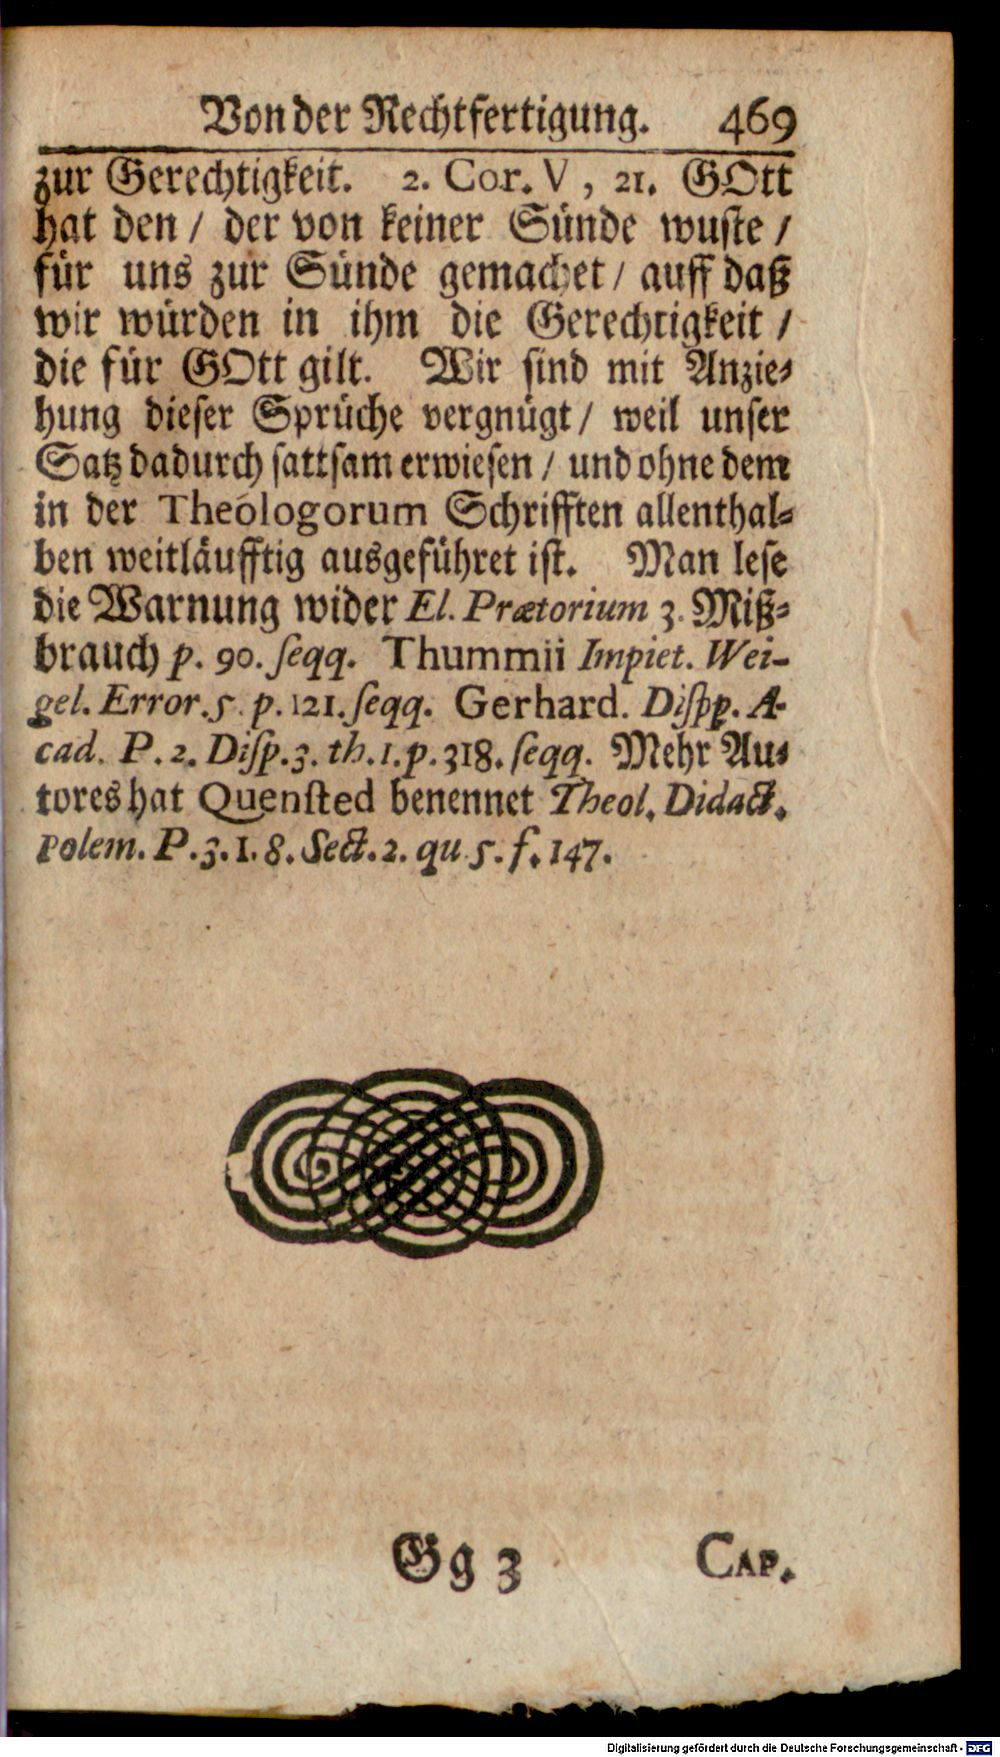 Von der Rechtfertigung. 469
zur Gerechtigkeit. 2. Cor. V, 21. GOtt
hat den / der von keiner Sünde wuste /
für uns zur Sünde gemachet / auff daß
wir würden in ihm die Gerechtigkeit /
die für GOtt gilt. Wir sind mit Anzie-
hung dieser Sprüche vergnügt / weil unser
Satz dadurch sattsam erwiesen / und ohne dem
in der Theologorum Schrifften allenthal-
ben weitläufftig ausgeführet ist. Man lese
die Warnung wider El. Prætorium 3. Miß-
brauch p. 90. ſeqq. Thummii Impiet. Wei-
gel. Error. 5. p. 121. ſeqq. Gerhard. Diſpp. A-
cad. P. 2. Diſp. 3. th. 1. p. 318. ſeqq. Mehr Au-
tores hat Quenſted benennet Theol. Didact.
Polem. P. 3. 1. 8. Sect. 2. qu. 5. f. 147.
Gg 3 CAP.
Digitalisierung gefördert durch die Deutsche Forschungsgemeinschaft - DFG